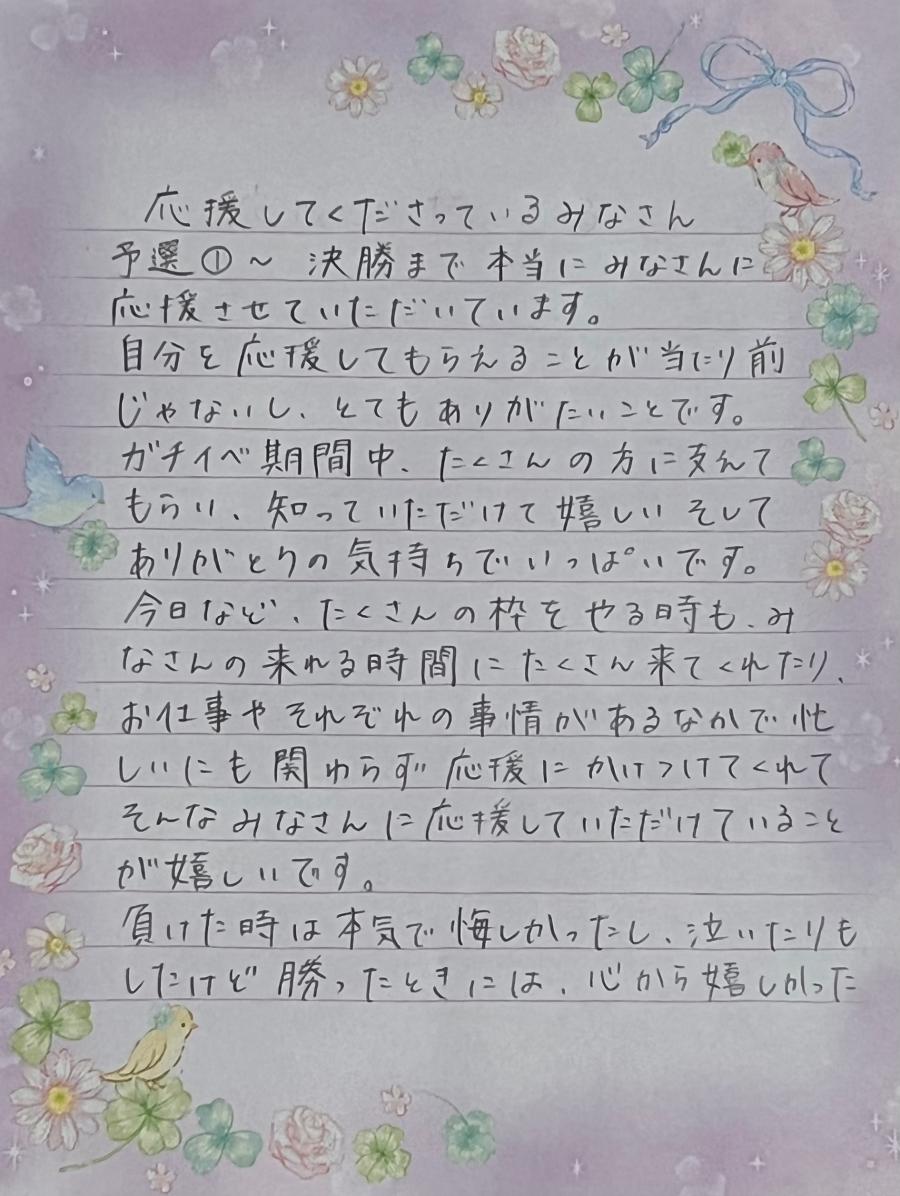 応援してくださっているみなさん
予選①~ 決勝まで本当にみなさんに
応援させていただいています。
自分を応援してもらえることが当たり前
じゃないし、とてもありがたいことです。
ガチイベ期間中、たくさんの方に支えて
もらい、知っていただけて嬉しいそして
ありがとうの気持ちでいっぱいです。
今日など、たくさんの枠をやる時も、み
なさんの来れる時間にたくさん来てくれたり、
お仕事やそれぞれの事情があるなかで忙
しいにも関わらず応援にかけつけてくれて
そんなみなさんに応援していただけていること
が嬉しいです。
負けた時は本気で悔しかったし、泣いたりも
したけど勝ったときには、心から嬉しかった